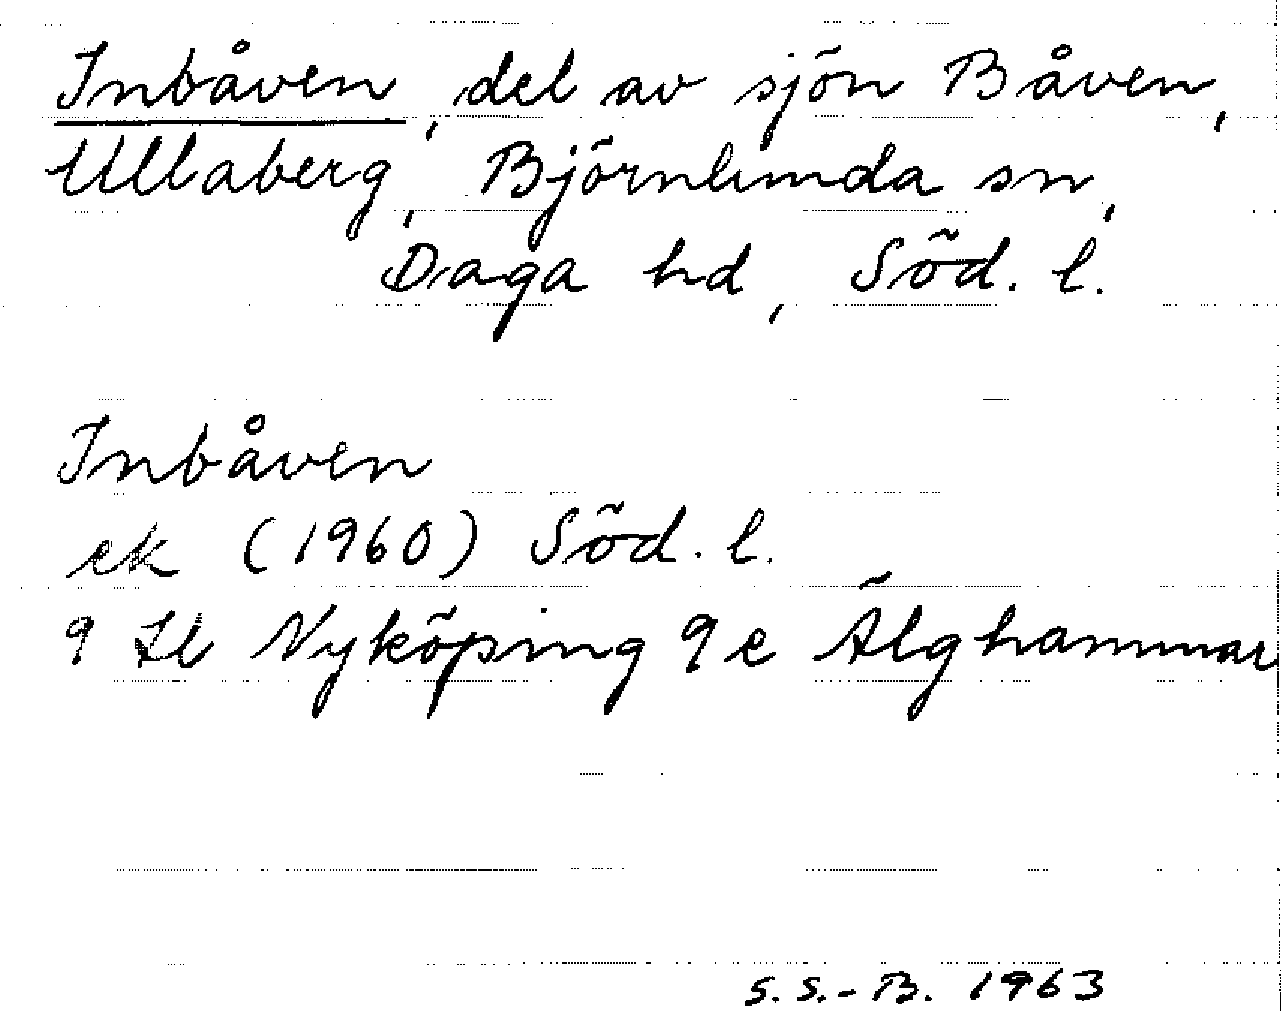 Inbåven, del av sjön Båven,
Ullaberg, Björnlunda sn,
Daga hd, Söd. l.
Inbåven
ek (1960) Söd. l.
Nyköping 9e Älghammar
S.S.-B. 1963